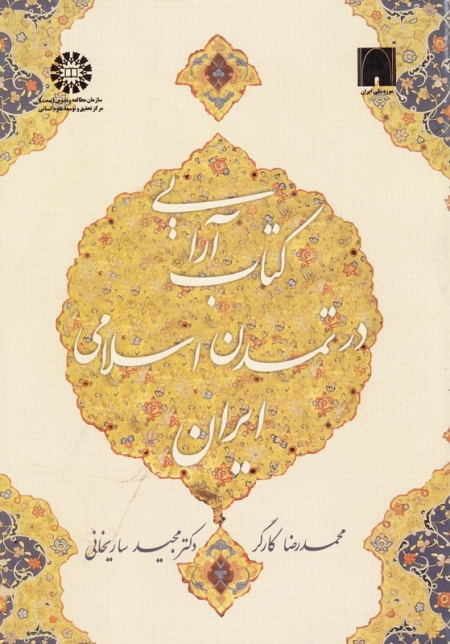 موزه ملی ایران
سازمان مطالعه و تدوین (سمت)
مرکز تحقیق و توسعه علوم انسانی
کتاب آرایی
در تمدن اسلامی
ایران
محمدرضا کارگر دکتر مجید ساریخانی